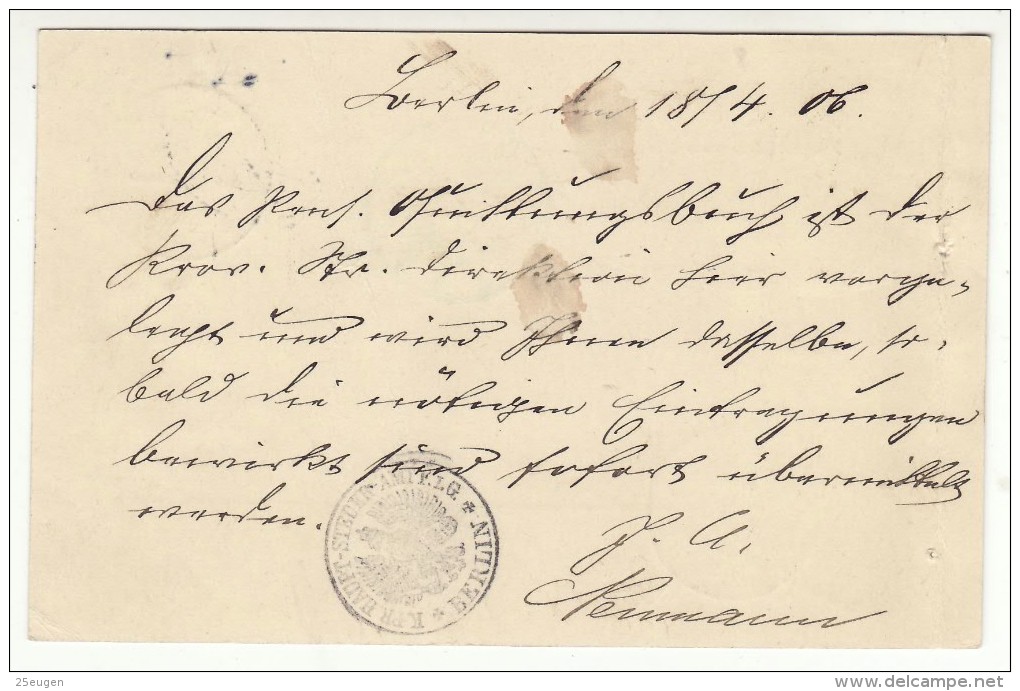 Berlin, den 18/4. 06.
Das Pens. Quittungsbuch ist der
Prov. Str. Direktion hier vorge-
legt und wird Ihnen dasselbe, so-
bald die nötigen Eintragungen
bewirkt sind sofort übermittelt
werden.
J. A.
Neumann
K. PR. HAUPT-STEUER-AMT F. I. G. BERLIN
25eugen
www.delcampe.net